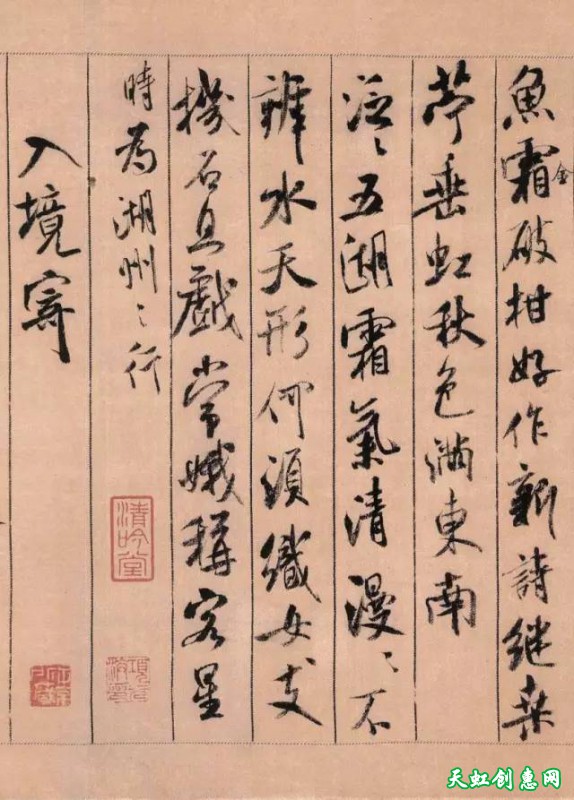 魚霜金破柑好作新詩繼桑
苧垂虹秋色滿東南
泛〻五湖霜氣清漫〻不
辨水天形何須織女支
機石且戲常娥稱客星
時為湖州之行
入境寄
清吟堂
天虹创惠网